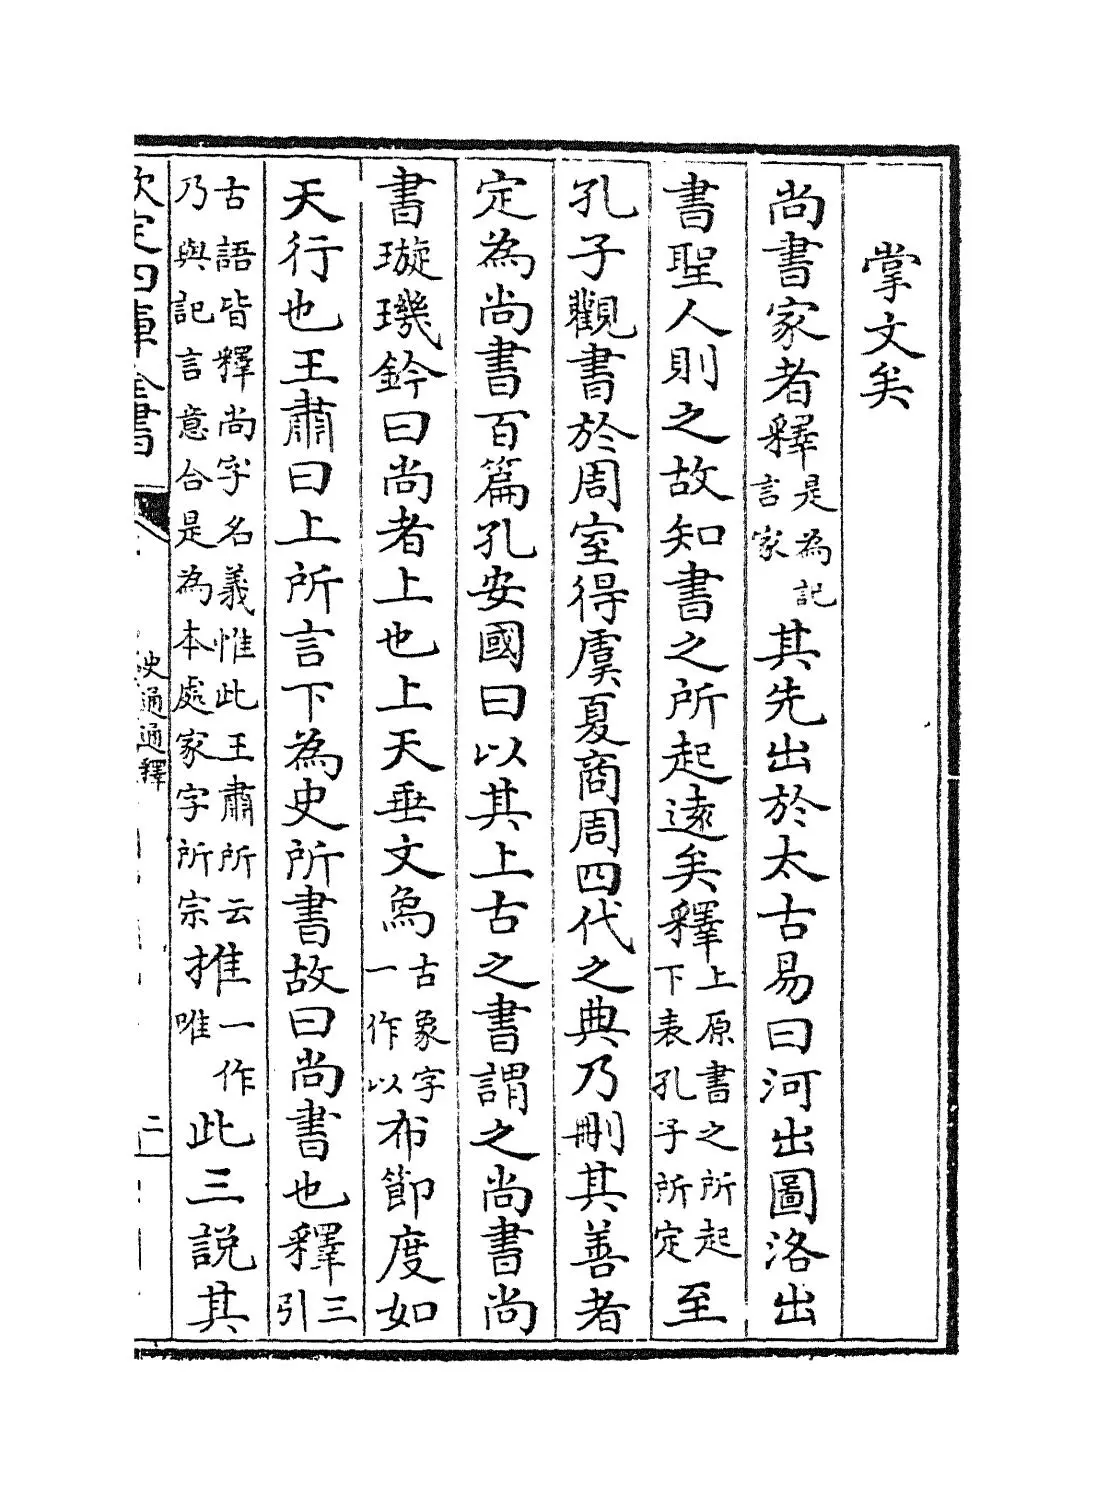 掌文矣
尚書家者釋是為記言家其先出於太古易曰河出圖洛出
書聖人則之故知書之所起遠矣釋上原書之所起下表孔子所定至
孔子觀書於周室得虞夏商周四代之典乃刪其善者
定為尚書百篇孔安國曰以其上古之書謂之尚書尚
書璇璣鈐曰尚者上也上天垂文為古象字一作以布節度如
天行也王肅曰上所言下為史所書故曰尚書也釋三引
古語皆釋尚字名義惟此王肅所云乃與記言意合是為本處家字所宗推一作唯此三說其
欽定四庫全書
史通通釋
二